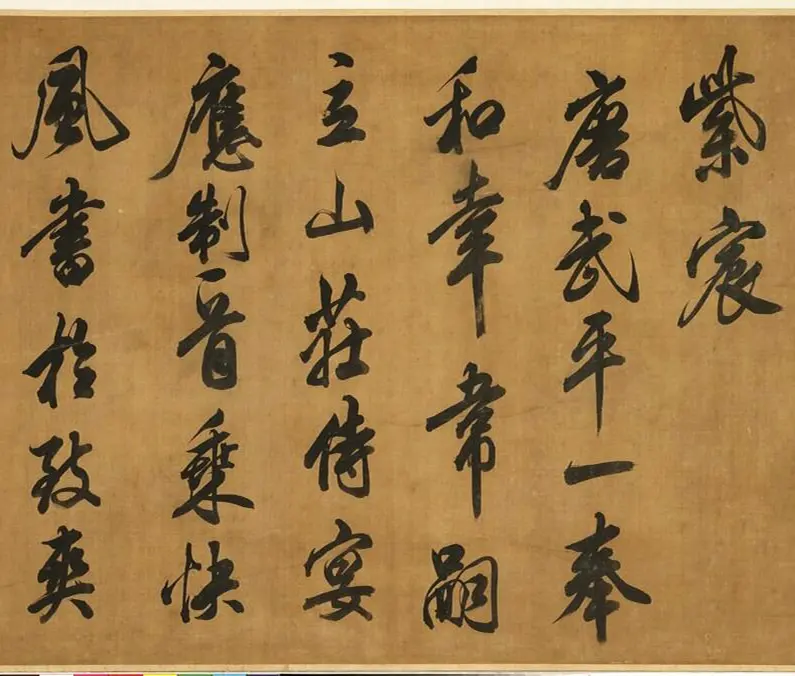 紫宸
唐武平一奉
和幸常嗣
立山莊侍宴
應制一首乘快
風書於致爽